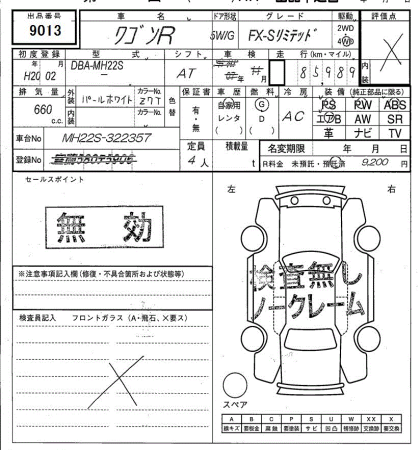 出品番号 車名 ドア形状 グレード 駆動 評価点
9013 ワゴンR 5W/G FX-Sリミテッド 2WD 4WD
初度登録 型式 シフト 車検 走行(km・マイル)
年 月 DBA-MH22S AT 年 月 85989
H20 02 ー
排気量 外装 カラーNo. 色替 保証書 車歴 燃料 冷房 装備(純正部品に限る)
660 c.c. パールホワイト Z7T 有・無 自家用 レンタ ( ) G D ( ) AC PS PW ABS
内装 カラーNo. エアB AW SR
革 ナビ TV
車台No MH22S-322357 定員 積載量 名変期限 年 月 日
登録No 4人 t R料金 未預託・預託済 9,200円
セールスポイント 左 右
無効
検査無し
ノークレーム
※注意事項記入欄(修復・不具合箇所および状態等)
検査員記入 フロントガラス(A・飛石、×要ス)
スペア
A B C P S U W X XX X